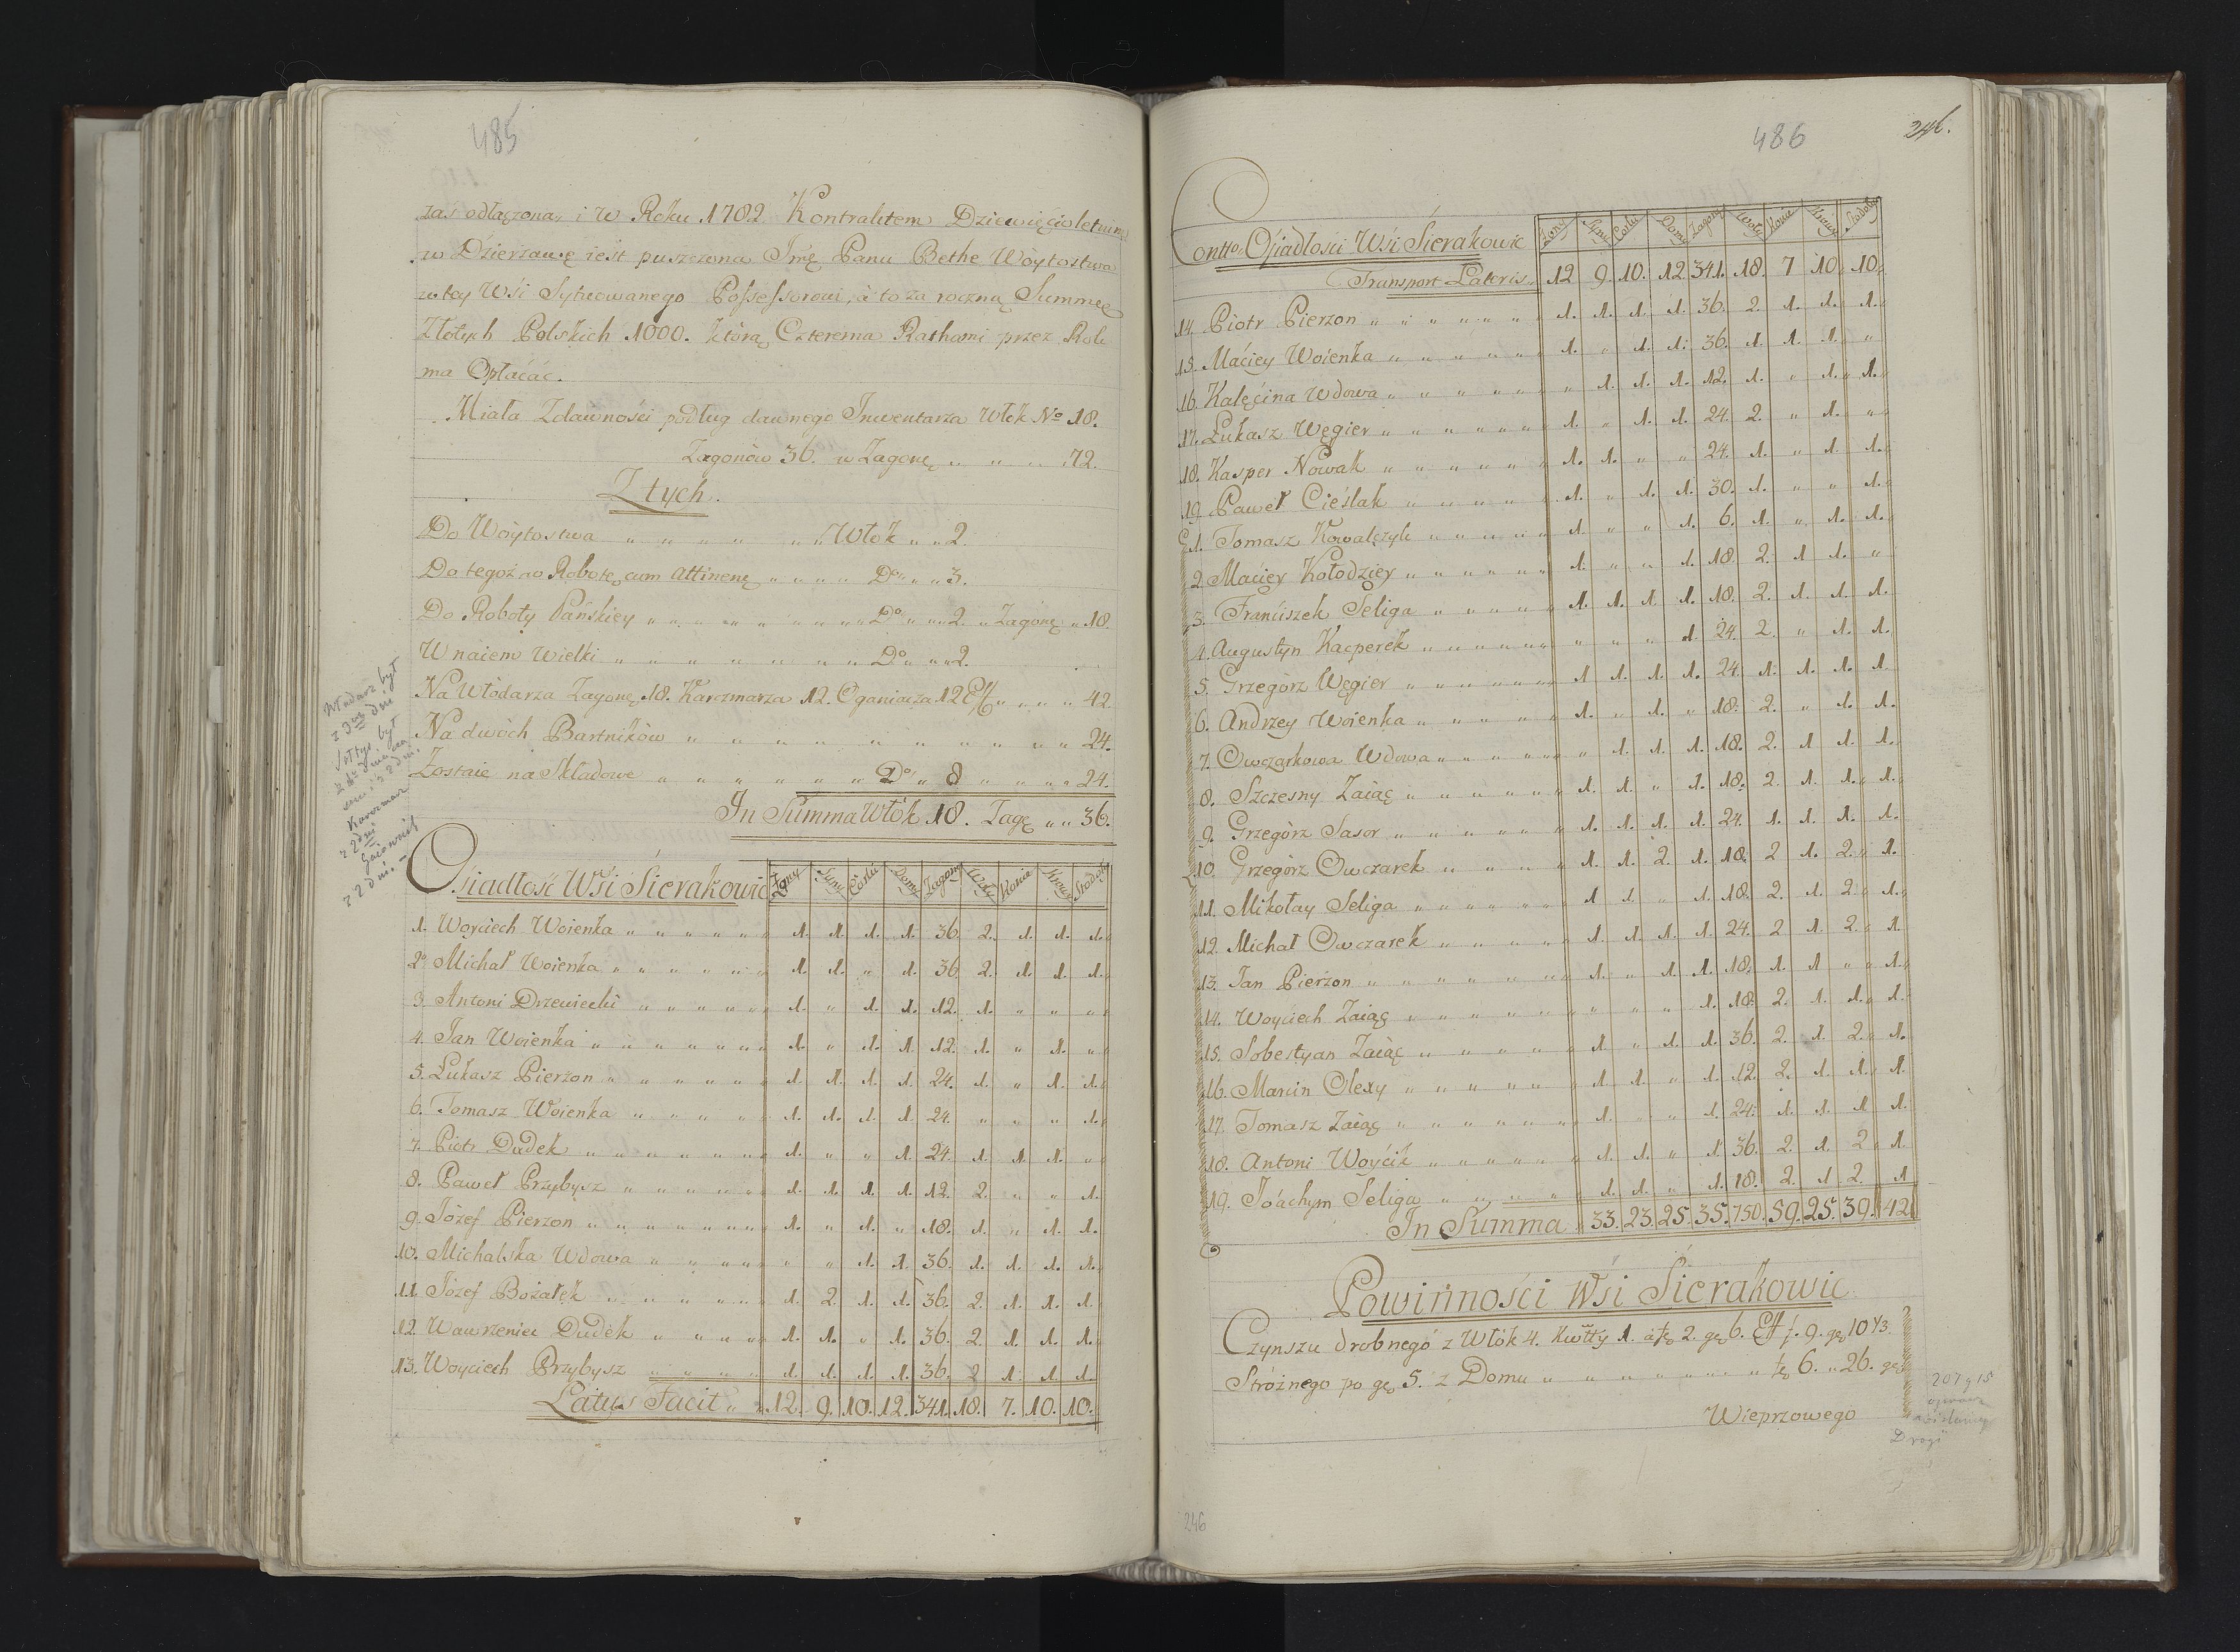 485
zas odłączona, i w Roku 1782 Kontraktem Dziewięcioletnim
w Dzierzawę iest puszczona Jmę Panu Bethe Wóytostwa
w tey Wsi Sytuowanego Possessorowi, à to za roczną Summę
Złotych Polskich 1000. którą Czterema Rathami przez Rok
ma Opłacać.
Miała Zdawności podług dawnego Inwentarza Włók No 18.
Zagonów 36. w Zagonę " " " 72.
Z tych.
Do Wóytostwa " " " " " " Włók " " 2.
Do tegoż no Robotę cum attinenę " " " " Do " " 3.
Do Roboty Pańskiey " " " " " " " " Do " " 2. " Zagonę " 18.
W naiem Wielki " " " " " " " " Do " " 2.
Na Włódarza Zagonę 18. Karczmarza 12. Oganiacza 12 Eff " " " " 42
Na dwóch Bartników " " " " " " " " " " 24.
Zostaie na Składowe " " " " " " Do " 8 " " " " 24.
In Summa Włók 18. Zagę " " 36.
Włodarz był
z 3ma dni
Karczmarz
z 2 dni
z 2 dni.
Osiadłość Wsi Sierakowic Żony Syny Córki Domy Zagony Woły Konie Krowy Stodoły
1. Woyciech Woienka " " " " " " 1. 1. 1. 1. 36. 2. 1. 1. 1.
2. Michał Woienka " " " " " " 1. 1. " 1. 36. 2. 1. 1. 1.
3. Antoni Drzewiecki " " " " " " 1. " 1. 1. 12. 1. " " "
4. Jan Woienka " " " " " " " 1. " 1. 1. 12. 1. " 1. "
5. Łukasz Pierzon " " " " " " 1. 1. 1. 1. 24. 1. " 1. 1.
6. Tomasz Woienka " " " " " 1. 1. 1. 1. 24. " " " 1.
7. Piotr Dudek " " " " " " " 1. " " 1. 24. 1. 1. 1. "
8. Paweł Przybysz " " " " " " 1. 1. 1. 1. 12. 2. " " 1.
9. Józef Pierzon " " " " " " " 1. " 1. " 18. 1. " 1. 1.
10. Michalska Wdowa " " " " " " " 1. 1. 36. 1. 1. 1. 1.
11. Józef Bożałek " " " " " " 1. 2. 1. 1. 36. 2. 1. 1. 1.
12. Wawrzeniec Dudek " " " " " 1. 1. " 1. 36. 2. 1. 1. 1.
13. Woyciech Przybysz " " " " 1. 1. 1. 1. 36. 2 1. 1. 1.
Latus Facit " " 12. 9. 10. 12. 341. 18. 7. 10. 10.
486
246.
Contto Osiadłości Wsi Sierakowic Żony Syny Córki Domy Zagony Woły Konie Krowy Stodoły
Transport Lateris 12 9. 10. 12. 341. 18. 7 10. 10.
14. Piotr Pierzon " " " " " " 1. 1. 1. 1. 36. 2. 1. 1. 1.
15. Maciey Woienka " " " " " " 1. " 1. 1. 36. 1. 1. 1. "
16. Kalęcina Wdowa " " " " " " " 1. 1. 1. 12. 1. " 1. 1.
17. Łukasz Węgier " " " " " " " 1. " 1. 1. 24. 2. " 1. "
18. Kasper Nowak " " " " " " 1. 1. " " 24. 1. " 1. 1.
19. Paweł Cieślak " " " " " 1. " 1. 1. 30. 1. " " 1.
1. Tomasz Kowalczyk " " " " " " 1. " " 1. 6. 1. " 1. 1.
2. Maciey Kołodziey " " " " " " 1. " " 1. 18. 2. 1 1. "
3. Franciszek Seliga " " " " " 1. 1. 1. 1. 18. 2. 1. 1. 1.
4. Augustyn Kacperek " " " " " " " " " 1. 24. 2. " 1. 1.
5. Grzegórz Węgier " " " " " " 1 1. 1. 1. 24. 1. 1. 1. 1.
6. Andrzey Woienka " " " " " 1. " 1. " 18. 2. " 1. 1.
7. Owczarkowa Wdowa " " " " " " 1. 1. 1. 18. 2. 1 1. 1.
8. Szczesny Zaiąc " " " " " " 1. 1. " 1. 18. 2. 1. 1. 1.
9. Grzegórz Sasor " " " " " " 1. 1. 1. 1. 24. 1. 1. 1. 1.
10. Grzegórz Owczarek " " " " " 1. 1. 2. 1. 18. 2 1. 2. 1.
11. Mikołay Seliga " " " " " " 1 1. " 1. 18. 2. 1. 2. 1.
12. Michał Owczarek " " " " " 1. 1. 1. 1. 24. 2 1. 2. 1.
13. Jan Pierzon " " " " " " " 1. " 1. 1. 18. 1. 1 " 1.
14. Woyciech Zaiąc " " " " " " " " " 1. 18. 2. 1. 1. 1.
15. Sobestyan Zaiąc " " " " " 1 " 1. 1. 36. 2. 1. 2. 1.
16. Marcin Olexy " " " " " " 1. 1. " 1. 12. 2. 1. 1. 1.
17. Tomasz Zaiąc " " " " " " 1. " " 1. 24. 1. 1. 1. 1.
18. Antoni Woycik " " " " " " 1. 1. " 1. 36. 2. 1. 2. 1.
19. Joachym Seliga " " " " " 1. 1. " 1. 18. 2. 1 2. 1
In Summa 33. 23. 25. 35. 750. 59. 25. 39. 42.
Powinności Wsi Sierakowic
Czynszu drobnego z Włók 4. Kwtty 1. à fę 2. gę 6. Eff f. 9. gę 10 1/3.
Stróżnego po gę 5. z Domu " " " " " " " fę 6. " 26. gę
Wieprzowego
207 g 15
Drogi
246